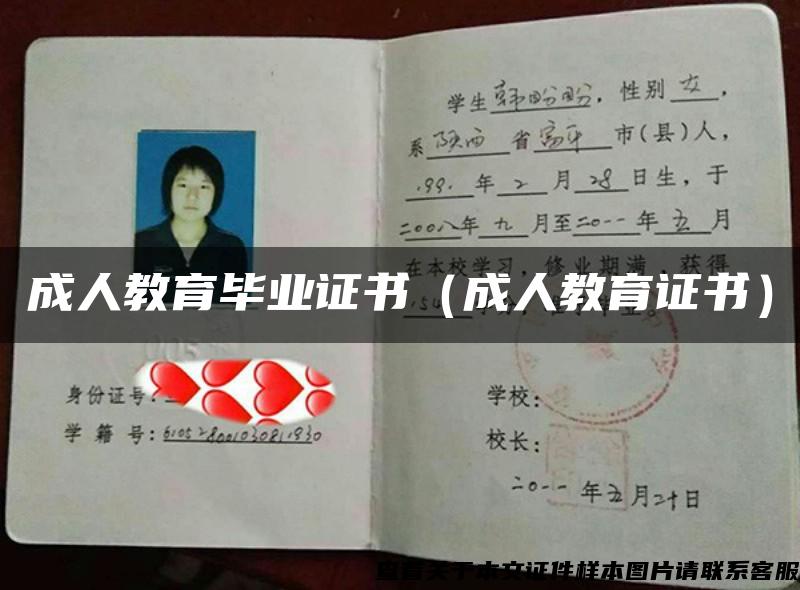 学生韩盼盼，性别女，
系陕西省富平市(县)人，
1991年2月28日生，于
二00八年九月至二0一一年五月
在本校学习，修业期满，获得
成人教育毕业证书（成人教育证书）
154
身份证号：
学籍号：610528001030811930
学校：
校长：
二0一一年五月二十日
查看关于本文证件样本图片请联系客服